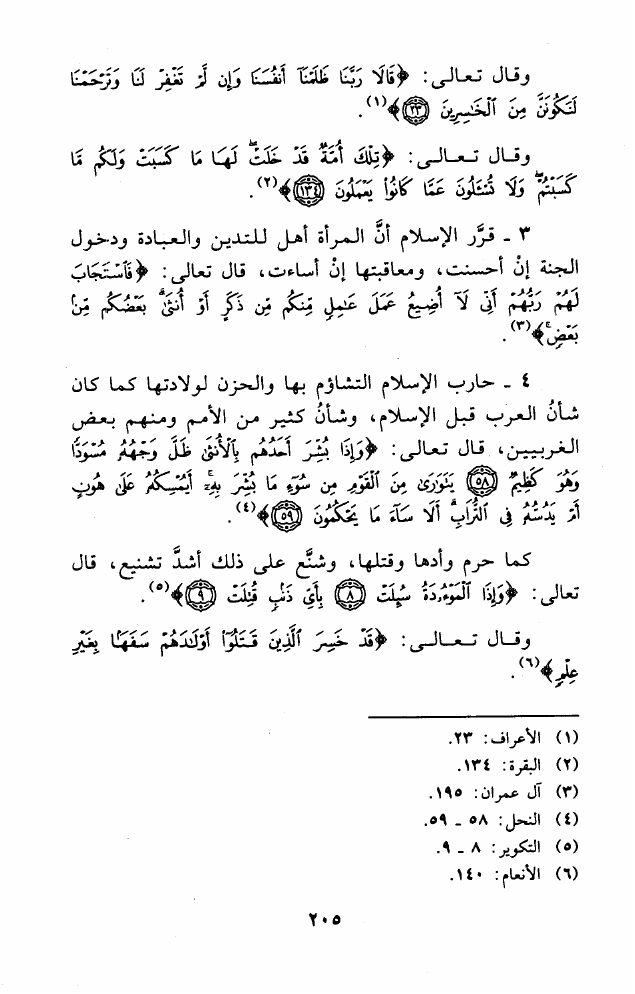 وقال تعالى: ﴿قَالَا رَبَّنَا ظَلَمْنَا أَنفُسَنَا وَإِن لَّمْ تَغْفِرْ لَنَا وَتَرْحَمْنَا
لَنَكُونَنَّ مِنَ ٱلْخَٰسِرِينَ ٢٣﴾(١).
وقال تعالى: ﴿تِلْكَ أُمَّةٌ قَدْ خَلَتْ لَهَا مَا كَسَبَتْ وَلَكُم مَّا
كَسَبْتُمْ وَلَا تُسْـَٔلُونَ عَمَّا كَانُوا۟ يَعْمَلُونَ ١٣٤﴾(٢).
٣ - قرَّر الإسلام أنَّ المرأة أهل للتدين والعبادة ودخول
الجنة إنْ أحسنت، ومعاقبتها إنْ أساءت، قال تعالى: ﴿فَٱسْتَجَابَ
لَهُمْ رَبُّهُمْ أَنِّى لَآ أُضِيعُ عَمَلَ عَٰمِلٍ مِّنكُم مِّن ذَكَرٍ أَوْ أُنثَىٰ بَعْضُكُم مِّنۢ
بَعْضٍ﴾(٣).
٤ - حارب الإسلام التشاؤم بها والحزن لولادتها كما كان
شأنُ العرب قبل الإسلام، وشأنُ كثير من الأمم ومنهم بعض
الغربيين، قال تعالى: ﴿وَإِذَا بُشِّرَ أَحَدُهُم بِٱلْأُنثَىٰ ظَلَّ وَجْهُهُۥ مُسْوَدًّا
وَهُوَ كَظِيمٌ ٥٨ يَتَوَٰرَىٰ مِنَ ٱلْقَوْمِ مِن سُوٓءِ مَا بُشِّرَ بِهِۦٓ أَيُمْسِكُهُۥ عَلَىٰ هُونٍ
أَمْ يَدُسُّهُۥ فِى ٱلتُّرَابِ أَلَا سَآءَ مَا يَحْكُمُونَ ٥٩﴾(٤).
كما حرم وأدها وقتلها، وشنَّع على ذلك أشدَّ تشنيع، قال
تعالى: ﴿وَإِذَا ٱلْمَوْءُۥدَةُ سُئِلَتْ ٨ بِأَىِّ ذَنۢبٍ قُتِلَتْ ٩﴾(٥).
وقال تعالى: ﴿قَدْ خَسِرَ ٱلَّذِينَ قَتَلُوٓا۟ أَوْلَٰدَهُمْ سَفَهًۢا بِغَيْرِ
عِلْمٍ﴾(٦).
(١) الأعراف: ٢٣.
(٢) البقرة: ١٣٤.
(٣) آل عمران: ١٩٥.
(٤) النحل: ٥٨ - ٥٩.
(٥) التكوير: ٨ - ٩.
(٦) الأنعام: ١٤٠.
٢٠٥